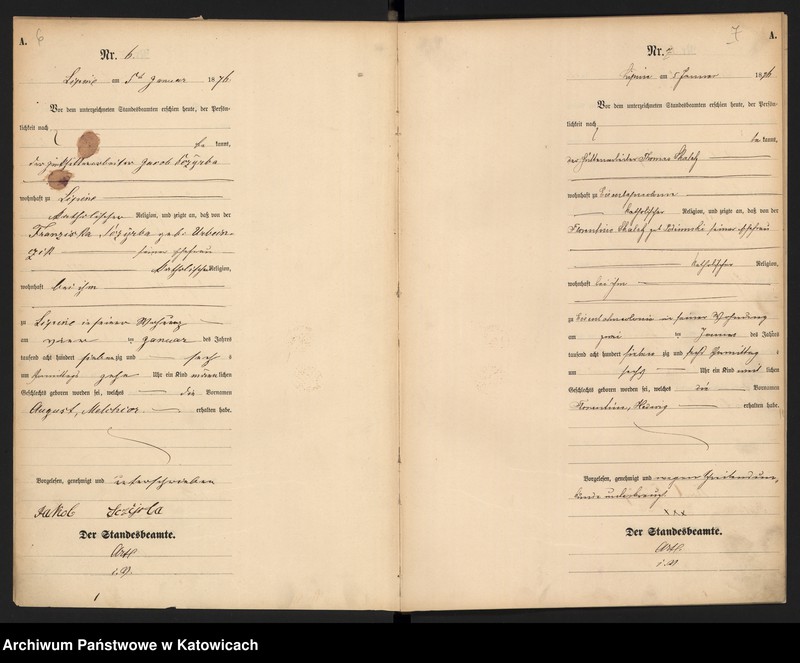 A.
6
Nr. 6.
Lipine am 5ten Januar 1876.
Vor dem unterzeichneten Standesbeamten erschien heute, der Persön-
lichkeit nach
be kannt,
der Zinkhüttenarbeiter Jacob
wohnhaft zu Lipine
katholischer Religion, und zeigte an, daß von der
Franziska geb. Urban-
zik seiner Ehefrau
katholischer Religion,
wohnhaft bei ihm
zu Lipine in seiner Wohnung
am vier ten Januar des Jahres
tausend acht hundert siebenzig und sechs
um Vormittags zehn Uhr ein Kind männlichen
Geschlechts geboren worden sei, welches die Vornamen
August, Melchior erhalten habe.
Vorgelesen, genehmigt und unterschrieben
Jakob
Der Standesbeamte.
i. V.
1
7
A.
Nr. 7
Lipine am 5 Januar 1876
Vor dem unterzeichneten Standesbeamten erschien heute, der Persön-
lichkeit nach
be kannt,
der Hüttenarbeiter Thomas
wohnhaft zu
katholischer Religion, und zeigte an, daß von der
Florentine geb. seiner Ehefrau
katholischer Religion,
wohnhaft bei ihm
zu in seiner Wohnung
am zwei ten Januar des Jahres
tausend acht hundert sieben zig und sechs Vormittag s
um sechs Uhr ein Kind weib lichen
Geschlechts geboren worden sei, welches die Vornamen
Florentine, Hedwig erhalten habe.
Vorgelesen, genehmigt und wegen
unterkreuzt
xxx
Der Standesbeamte.
i. V.
Archiwum Państwowe w Katowicach